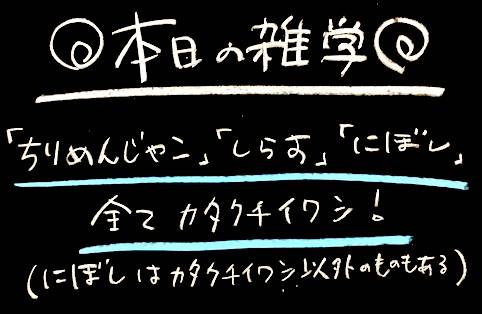 本日の雑学
「ちりめんじゃこ」「しらす」「にぼし」
全てカタクチイワシ！
(にぼしはカタクチイワシ以外のものもある)